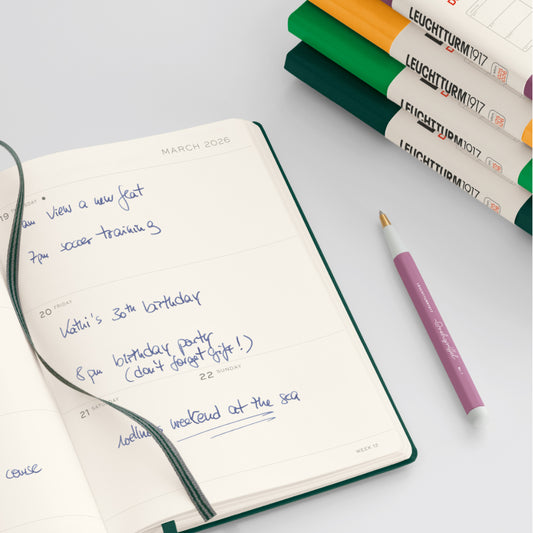 MARCH 2026
19
am view a new flat
7pm soccer training
20 FRIDAY
Kathi's 30th birthday
8pm birthday party
(don't forget gift!)
21 SATURDAY
22 SUNDAY
wellness weekend at the sea
WEEK 12
course
LEUCHTTURM1917
LEUCHTTURM1917
LEUCHTTURM1917
LEUCHTTURM1917
LEUCHTTURM1917